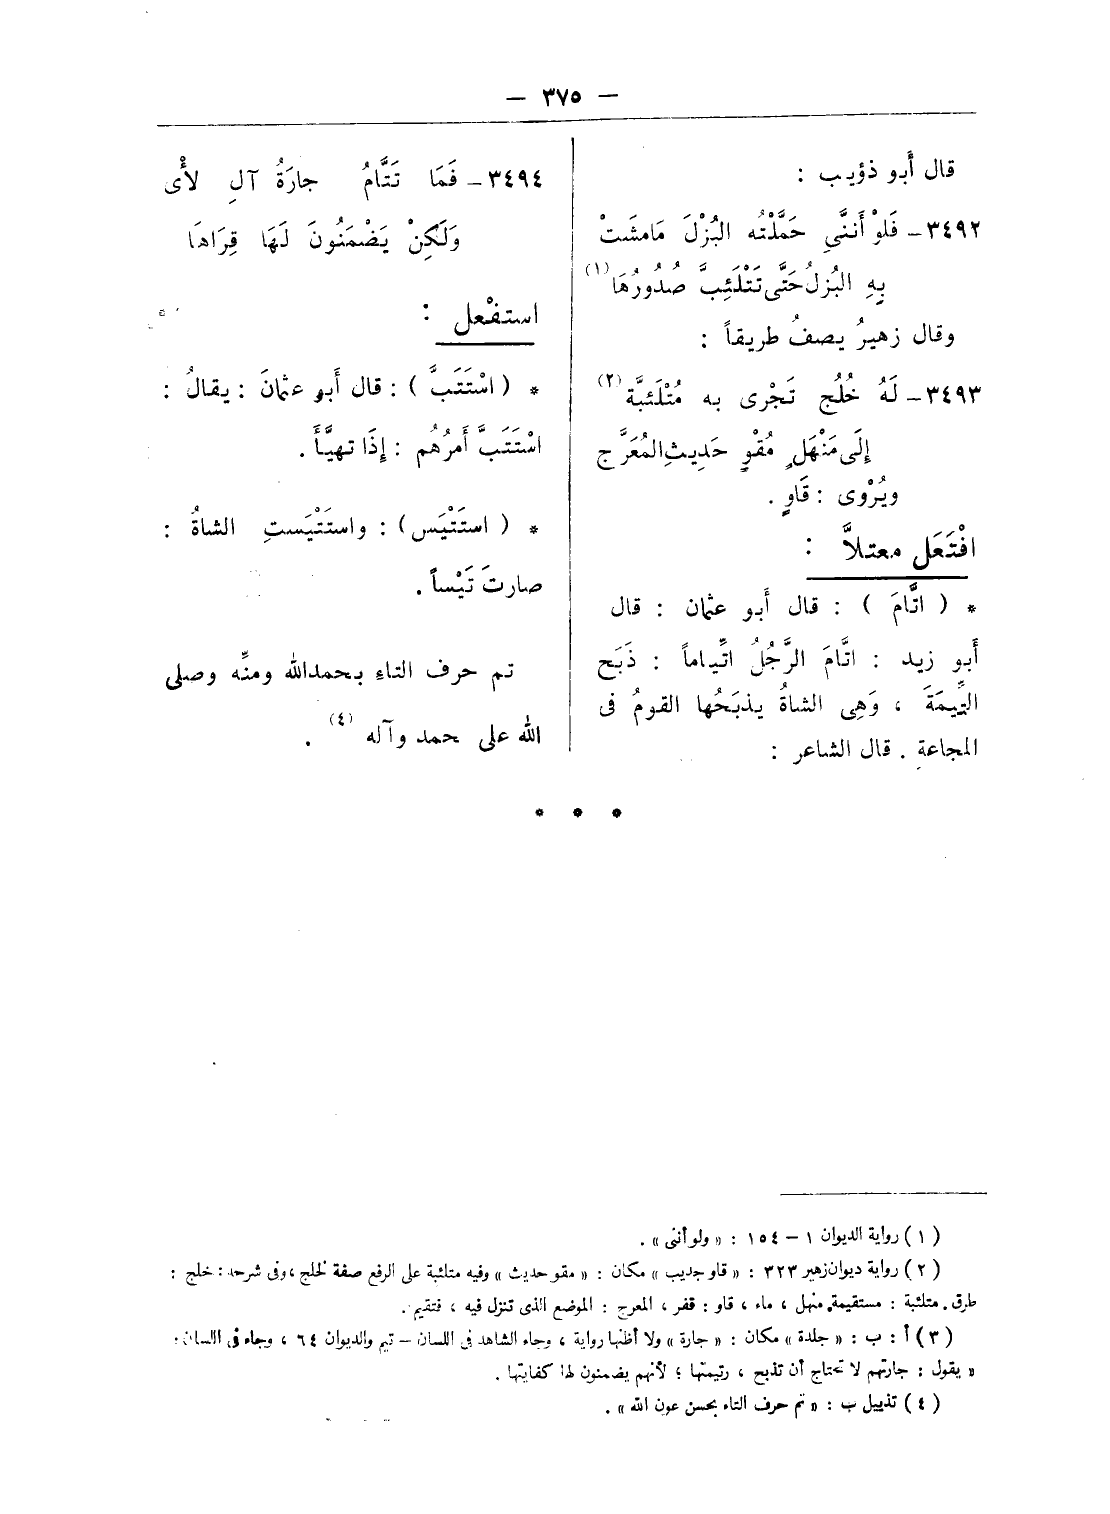 — ٣٧٥ —
قال أَبو ذؤيب :
٣٤٩٢ــ فَلوْ أَننَّى حَمَّلْتُه البُزْلَ مَامشَتْ
بِهِ البُزلُ حَتَّى تَتْلَئِبَّ صُدُورُهَا (١)
وقال زهيرُ يصفُ طريقاً :
٣٤٩٣ــ لَهُ خُلُج تَجْرى به مُتْلَئبَّة (٢)
إِلَى مَنْهَلٍ مُقْوٍ حَدِيثِ المُعَرَّج
ويُرْوى : قَاوٍ .
افْتَعَل معتلاَّ :
* ( اتَّامَ ) : قال أَبو عثمان : قال
أَبو زيد : اتَّامَ الرَّجُلُ اتِّياماً : ذَبَح
التِّيمَةَ ، وَهِى الشاةُ يذبَحُها القومُ فى
المجاعةِ . قال الشاعر :
٣٤٩٤ــ فَمَا تَتَّامُ جارَةُ آلِ لأْى
وَلَكِنْ يَضْمَنُونَ لَهَا قِرَاهَا
استفْعل :
* ( اسْتَتَبَّ ) : قال أَبو عثمانَ : يقالُ :
اسْتَتَبَّ أَمرُهُم : إِذَا تهيَّأَ .
* ( استَتْيَس) : واستَتْيَستِ الشاةُ :
صارتَ تَيْساً .
تم حرف التاء بحمدالله ومنِّه وصلى
الله على حمد وآله (٤) .
* * *
( ١ ) رواية الديوان ١ – ١٥٤ : « ولو أننى » .
( ٢ ) رواية ديوان زهير ٣٢٣ : « قاو جديب » مكان : « مقو حديث » وفيه متلئبة على الرفع صفة لخلج ، وفى شرحه : خلج :
طرق . متلئبة : مستقيمة . منهل ، ماء ، قاو : قفر ، المعرج : الموضع الذى تنزل فيه ، فتقيم .
( ٣ ) أ : ب : « جلدة » مكان : « جارة » ولا أظنها رواية ، وجاء الشاهد فى اللسان – تيم والديوان ٦٤ ، وجاء فى اللسان :
« يقول : جارتهم لا تحتاج أن تذبح ، رتيمتها ؛ لأنهم يضمنون لها كفايتها .
( ٤ ) تذييل ب : « تم حرف التاء بحسن عون الله » .